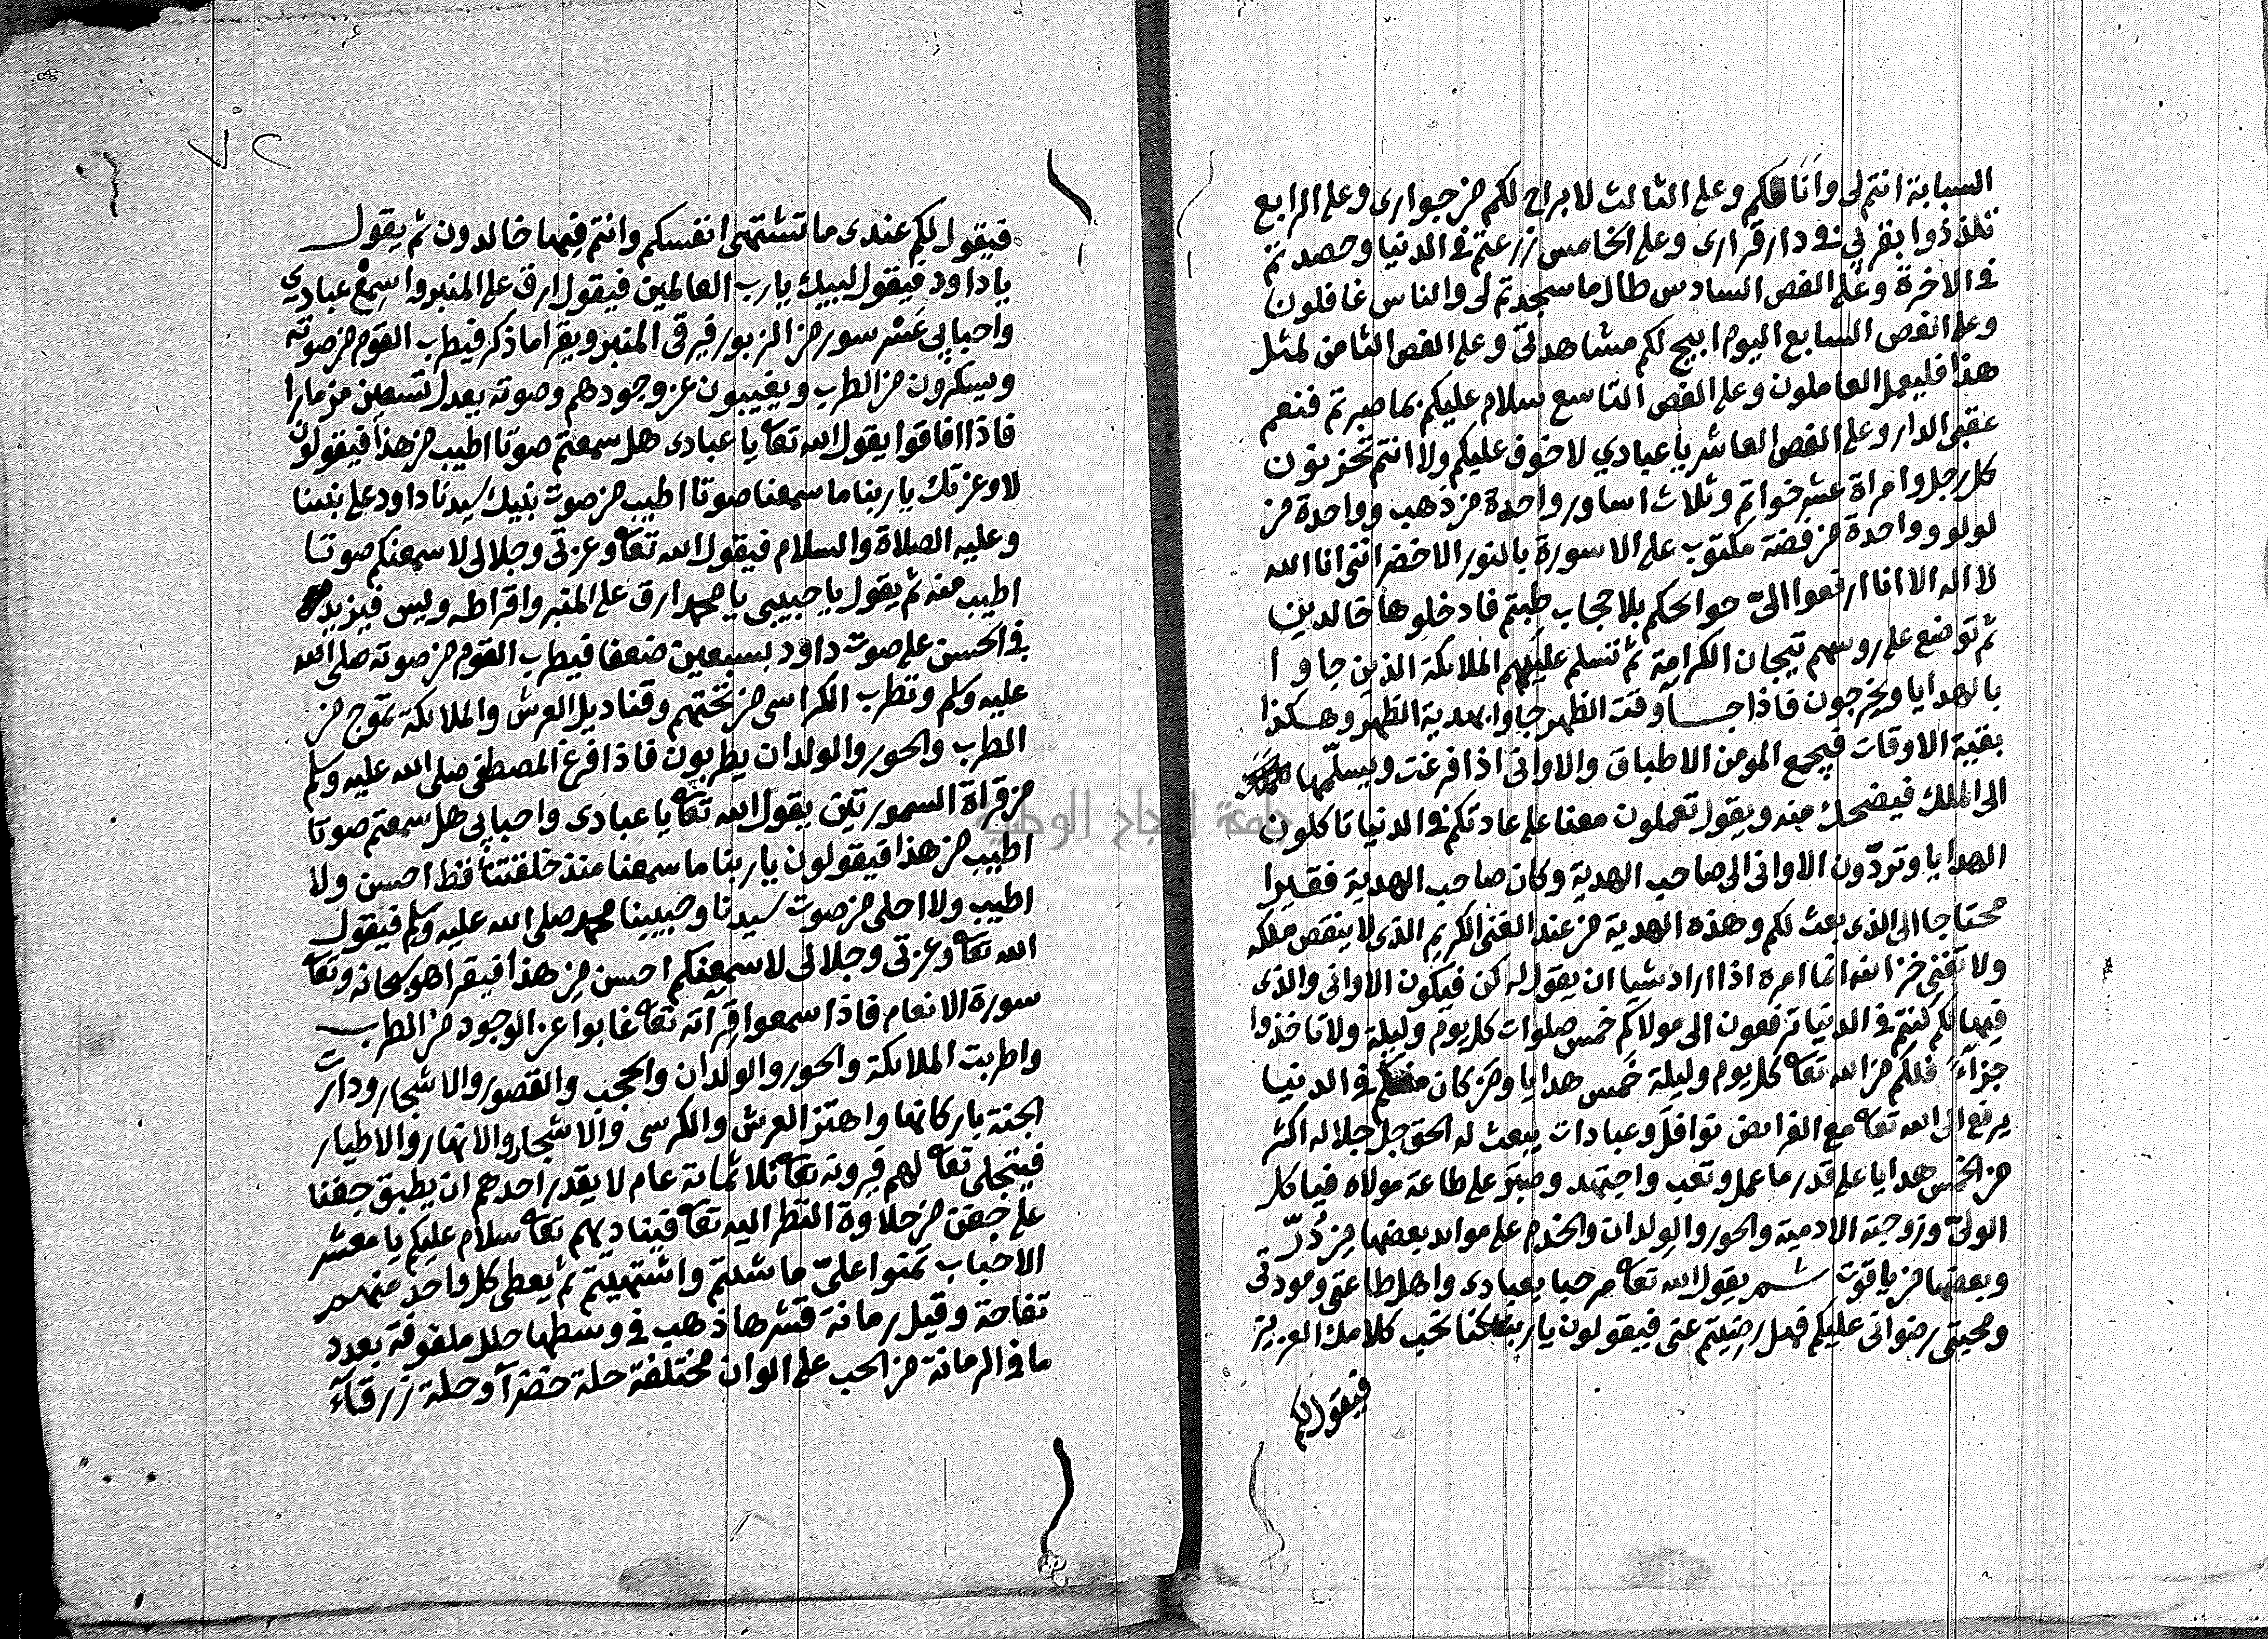 السبابة انتم لى وانا لكم وعلى الثالث لا براح لكم من جوارى وعلى الرابع
تلذذوا بقربى فى دار قرارى وعلى الخامس زرعتم فى الدنيا وحصدتم
فى الاخرة وعلى الفص السادس طال ما سجدتم لى والناس غافلون
وعلى الفص السابع اليوم ابيح لكم مشاهدتى وعلى الفص الثامن لمثل
هذا فليعمل العاملون وعلى الفص التاسع سلام عليكم بما صبرتم فنعم
عقبى الدار وعلى الفص العاشر يا عبادي لا خوف عليكم ولا انتم تحزنون
كل رجل وامراة عشر خواتم وثلاث اساور واحدة من ذهب وواحدة من
لولو وواحدة من فضة مكتوب على الاسورة بالنور الاخضر اننى انا الله
لا اله الا انا ارفعوا الىّ حوائحكم بلا حجاب طبتم فادخلوها خالدين
ثم توضع على روسهم تيجان الكرامة ثم تسلم عليهم الملايكة الذين جاوا
بالهدايا ويخرجون فاذا جاء وقت الظهر جاوا بهدية الظهر وهكذا
بقية الاوقات فيجمع المومن الاطباق والاوانى اذا فرغت ويسلّمها
الى الملك فيضحك منه ويقول تعملون معنا على عادتكم فى الدنيا تاكلون
الهدايا وتردّون الاوانى الى صاحب الهدية وكان صاحب الهدية فقيرا
محتاجا الى الذى بعث لكم وهذه الهدية من عند الغنى الكريم الذى لا ينقص ملكه
ولا تفنى خزائنه انما امره اذا اراد شيا ان يقول له كن فيكون الاوانى والذى
فيها لكم كنتم فى الدنيا ترفعون الى مولاكم خمس صلوات كل يوم وليلة ولا تاخذوا
جزآءً فلكم من الله تعا كل يوم وليلة خمس هدايا ومن كان منكم فى الدنيا
يرفع الى الله تعا مع الفرائض نوافل وعبادات يبعث له الحق جل جلاله اكثر
من الخمس هدايا على قدر ما عمل وتعب واجتهد وصبر على طاعة مولاه فياكل
الولىّ وزوجته الادمية والحور والولدان والخدم على موايد بعضها من دُرّ
وبعضها من ياقوت ثم يقول الله تعا مرحبا بعبادى واهل طاعتى ومودتى
ومحبتى رضوانى عليكم فهل رضيتم عنى فيقولون يا ربنا كنا نحب كلامك العزيز
فيقول لكم
٧٢
فيقول لكم عندى ما تشتهى انفسكم وانتم فيها خالدون ثم يقول
يا داود فيقول لبيك يا رب العالمين فيقول ارق على المنبر واسمع عبادي
واحبابى عشر سور من الزبور فيرقى المنبر ويقرا ما ذكر فيطرب القوم من صوته
ويسكرون من الطرب ويغيبون عن وجودهم وصوته يعدل تسعين مزمارا
فاذا افاقوا يقول الله تعا يا عبادى هل سمعتم صوتا اطيب من هذا فيقولون
لا وعزتك يا ربنا ما سمعنا صوتا اطيب من صوت نبيك سيدنا داود على نبينا
وعليه الصلاة والسلام فيقول الله تعا وعزتى وجلالى لاسمعنكم صوتا
اطيب منه ثم يقول يا حبيبى يا محمد ارق على المنبر واقرا طه ويس فيزيد
فى الحسن على صوت داود بسبعين ضعفا فيطرب القوم من صوته صلى الله
عليه وسلم وتطرب الكراسى من تحتهم وقناديل العرش والملائكة تموج من
الطرب والحور والولدان يطربون فاذا فرغ المصطفى صلى الله عليه وسلم
من قراة السورتين يقول الله تعا يا عبادى واحبابى هل سمعتم صوتا
اطيب من هذا فيقولون يا ربنا ما سمعنا منذ خلقتنا قط احسن ولا
اطيب ولا احلى من صوت سيدنا وحبيبنا محمد صلى الله عليه وسلم فيقول
الله تعا وعزتى وجلالى لاسمعنكم احسن من هذا فيقرا هو سبحانه وتعا
سورة الانعام فاذا سمعوا قرآته تعا غابوا عن الوجود من الطرب
واطربت الملائكة والحور والولدان والحجب والقصور والاشجار ودارت
الجنة باركانها واهتز العرش والكرسى والاشجار والانهار والاطيار
فيتجلى تعا لهم فيرونه تعا ثلاثمائة عام لا يقدر احدهم ان يطبق جفنا
على جفن من حلاوة النظر اليه تعا فيناديهم تعا سلام عليكم يا معشر
الاحباب تمنوا علىّ ما شئتم واشتهيتم ثم يعطى كل واحد منهم
تفاحة وقيل رمانة قشرها ذهب فى وسطها حلل ملفوفة بعدد
ما فى الرمانة من الحب على الوان مختلفة حلة خضرآ وحلة زرقآءَ
جامعة النجاح الوطنية